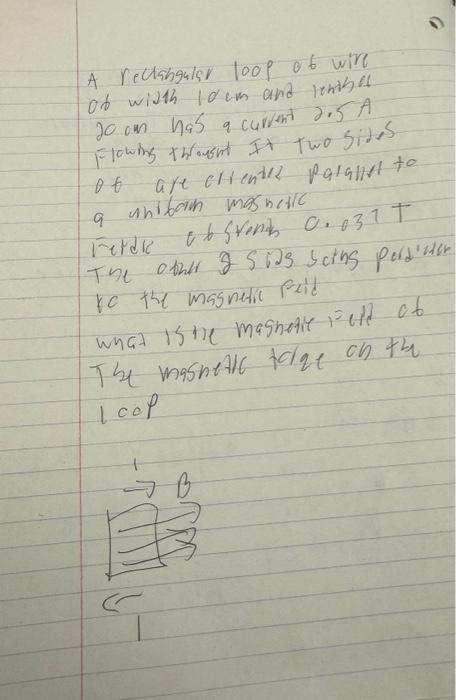 A rectangular loop of wire
of width 10 cm and length of
20 cm has a current 2.5 A
Flowing throught It two sides
of are oriented parallel to
a uniform magnetic
of strength 0.037 T
The other 2 sides being
to the magnetic field
what is the magnetic Field of
The magnetic on the
loop
I
→ B
I